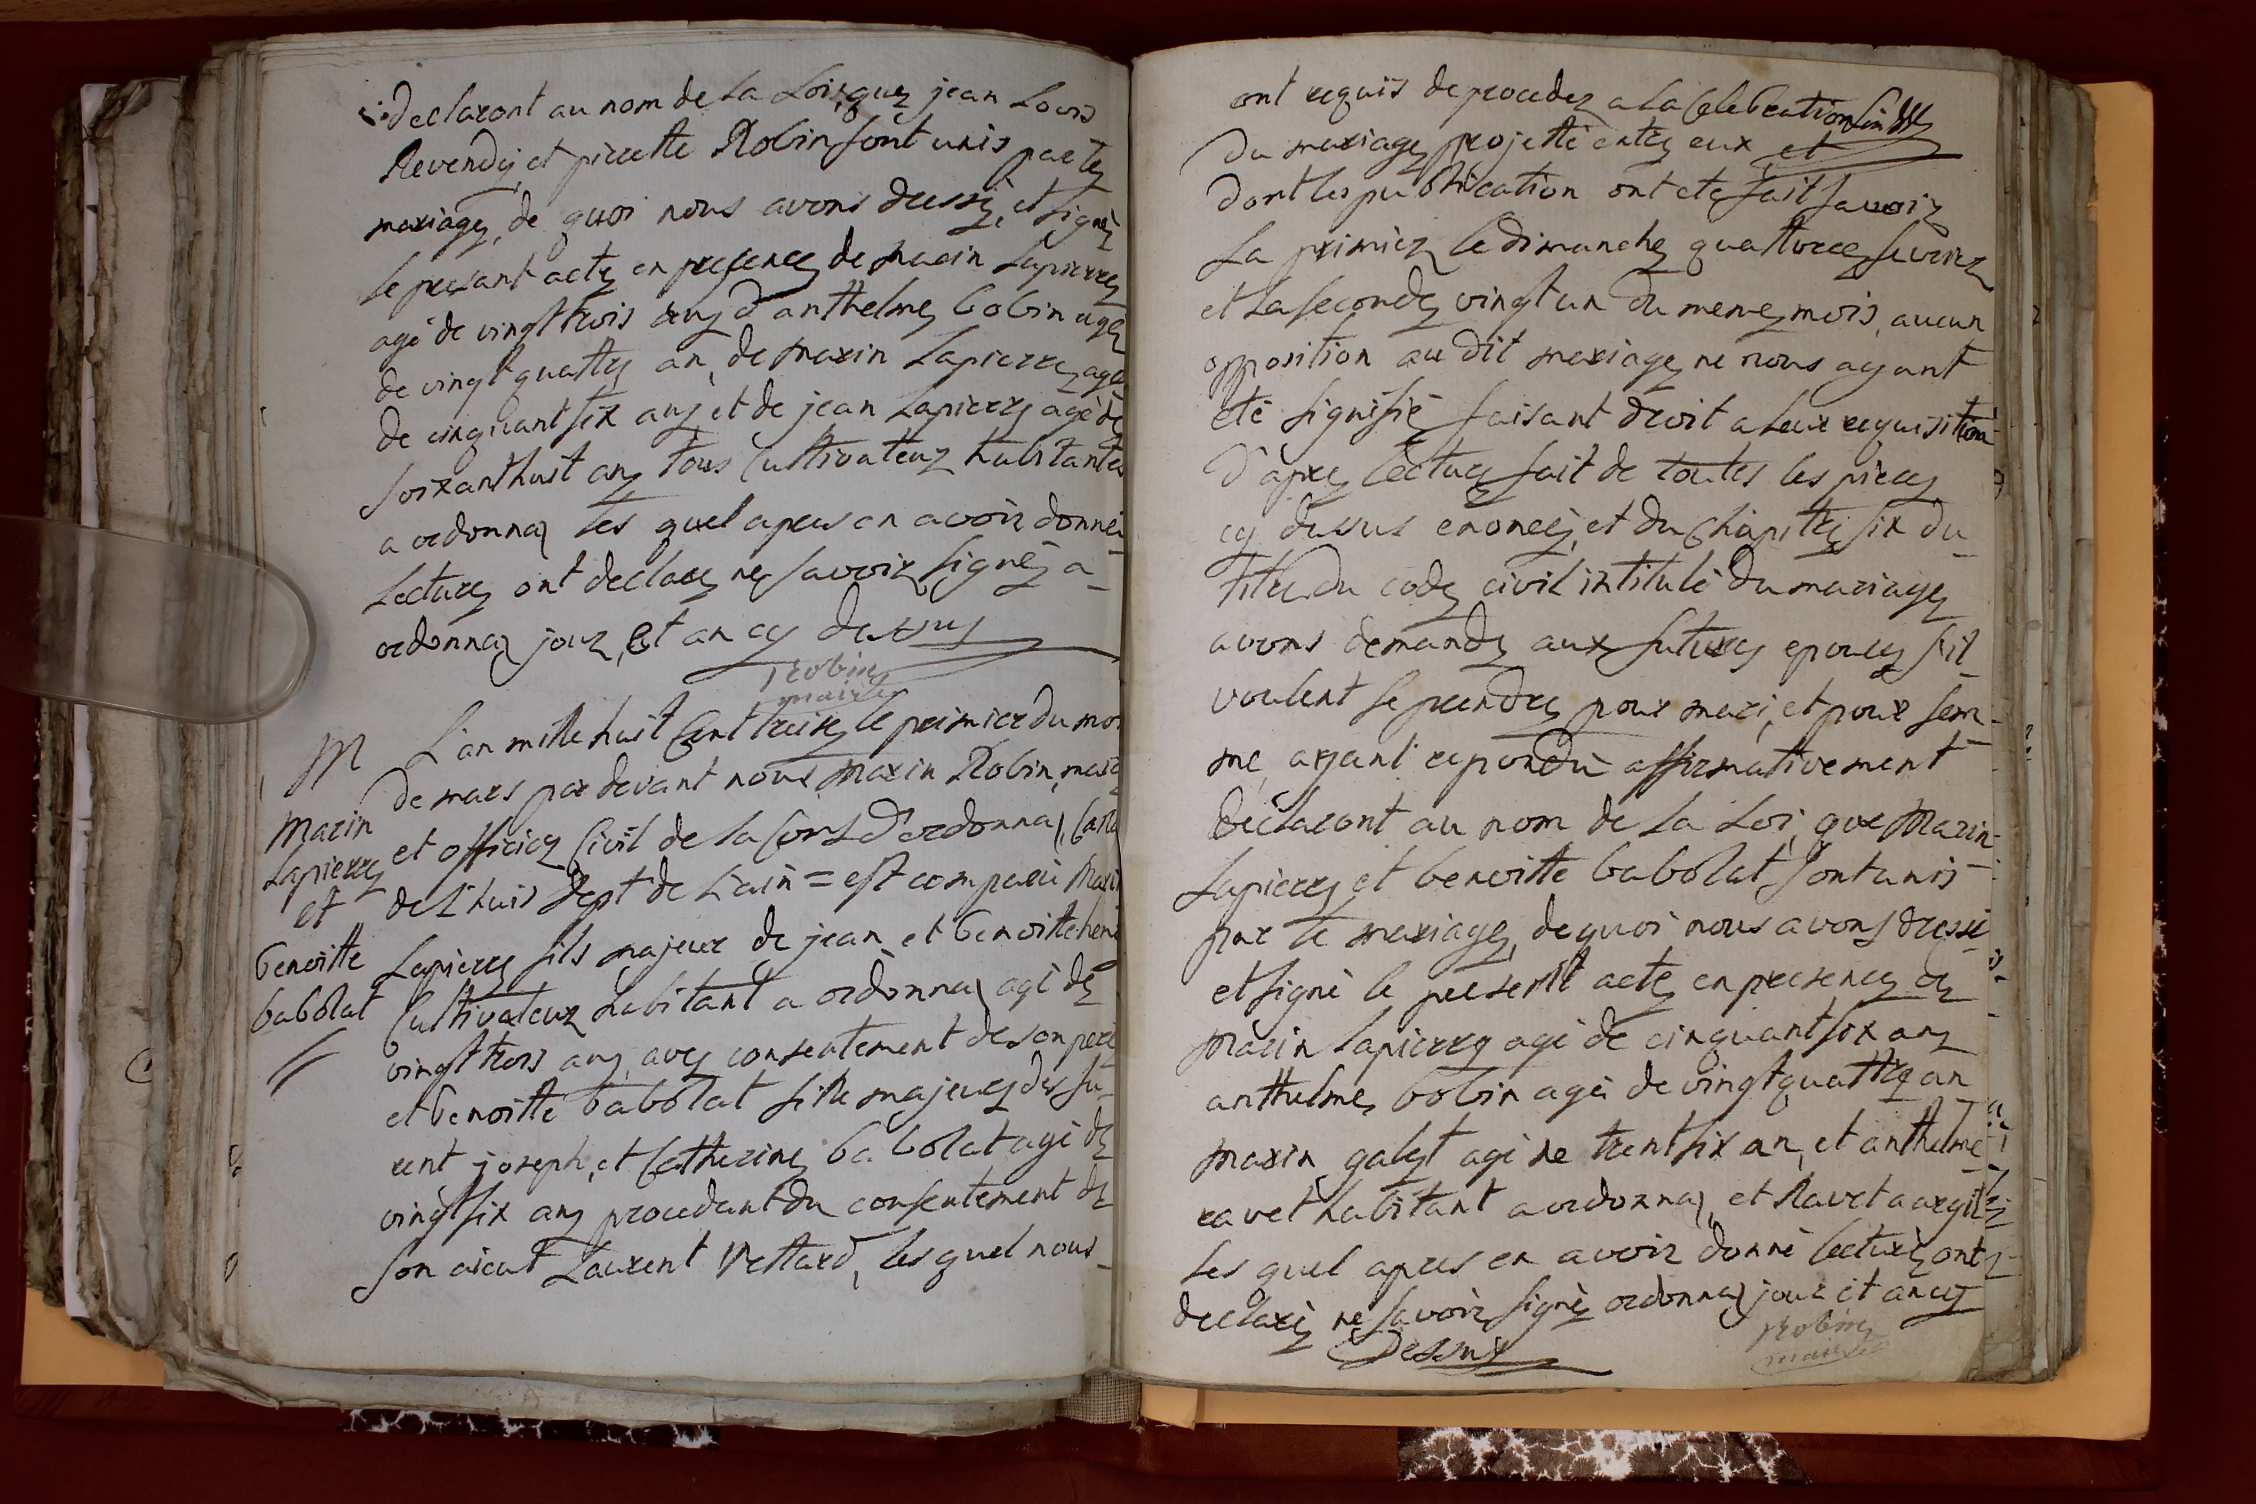 declaront au nom de la Loi, que jean Louis
Revendy, et pierrette Robin sont unis par le
mariage, de quoi nous avons dressé, et signé
le presant acte en presence de marin Lapierre
agé de vingt trois ans d'anthelme bobin agé
de vingt quattre an, de marin Lapierre, agé
de cinquant six ans et de jean Lapierre agé de
soixant huit ans tous Cultivateur habitante
a ordonnaz les quel apres en avoir donné
Lecture ont declare ne savoir signé a
ordonnaz jour, et an cy dessus
Robin
maire
M
Marin
Lapierre
et
benoitte
babolat
L'an mille huit Cent treize le primier du moi
de mars par devant nous Marin Robin, maire
et officier Civil de la Com d'ordonnaz, Can
de Lhuis Dept de L'ain = est comparu Marin
Lapierre fils majeur de jean et benoitte
Cultivateur habitant a ordonnaz agé de
vingt trois ans, avec consentement de son pere
et benoitte babolat fille majeure des fu-
rent joseph, et Catherine babolat agé de
vingt six ans procedant du consentement de
son aieul Laurent Vettard, les quel nous
ont requis de proceder a la Celebration
du mariage projetté entre eux et
dont les publication ont eté fait savoir
La primier le dimanche quattorze fevrier
et La seconde vingt un du meme mois, aucun
opposition au dit mariage ne nous ayant
eté signifié faisant droit a leur requisition
D'apre lecture fait de toutes les pieces
cy dessus enoncé, et du Chapitre six du
titre du code civil intitulé du mariage
avons demande aux future epouse s'il
voulent se prendre pour mari, et pour fem-
me, ayant repondu affirmativement
Déclaront au nom de La Loi, que Marin
Lapierre et benoitte babolat sont unis
par le mariage, de quoi nous avons dressé
et signé le present acte en presence de
Marin Lapierre agé de cinquant six ans
anthelme bobin agé de vingt quattre an
marin galet agé de trent six an, et anthelme
ravet habitant a ordonnaz, et Ravet a
Les quel apres en avoir donné lecture, ont
declaré ne savoir signé ordonnaz jour et an cy
Dessus
Robin
maire